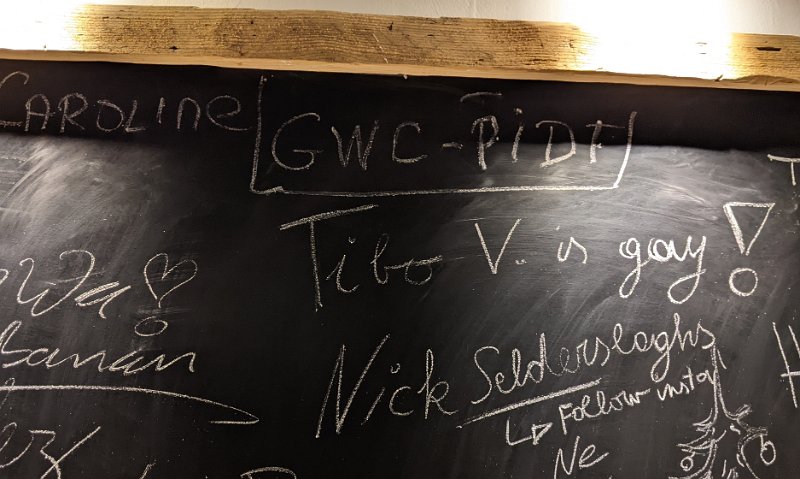 CAROLINE
GWC-PiDT
Tibo V. is gay!
Wa!
Banaan
Nick Selderslaghs
Follow insta
Ne